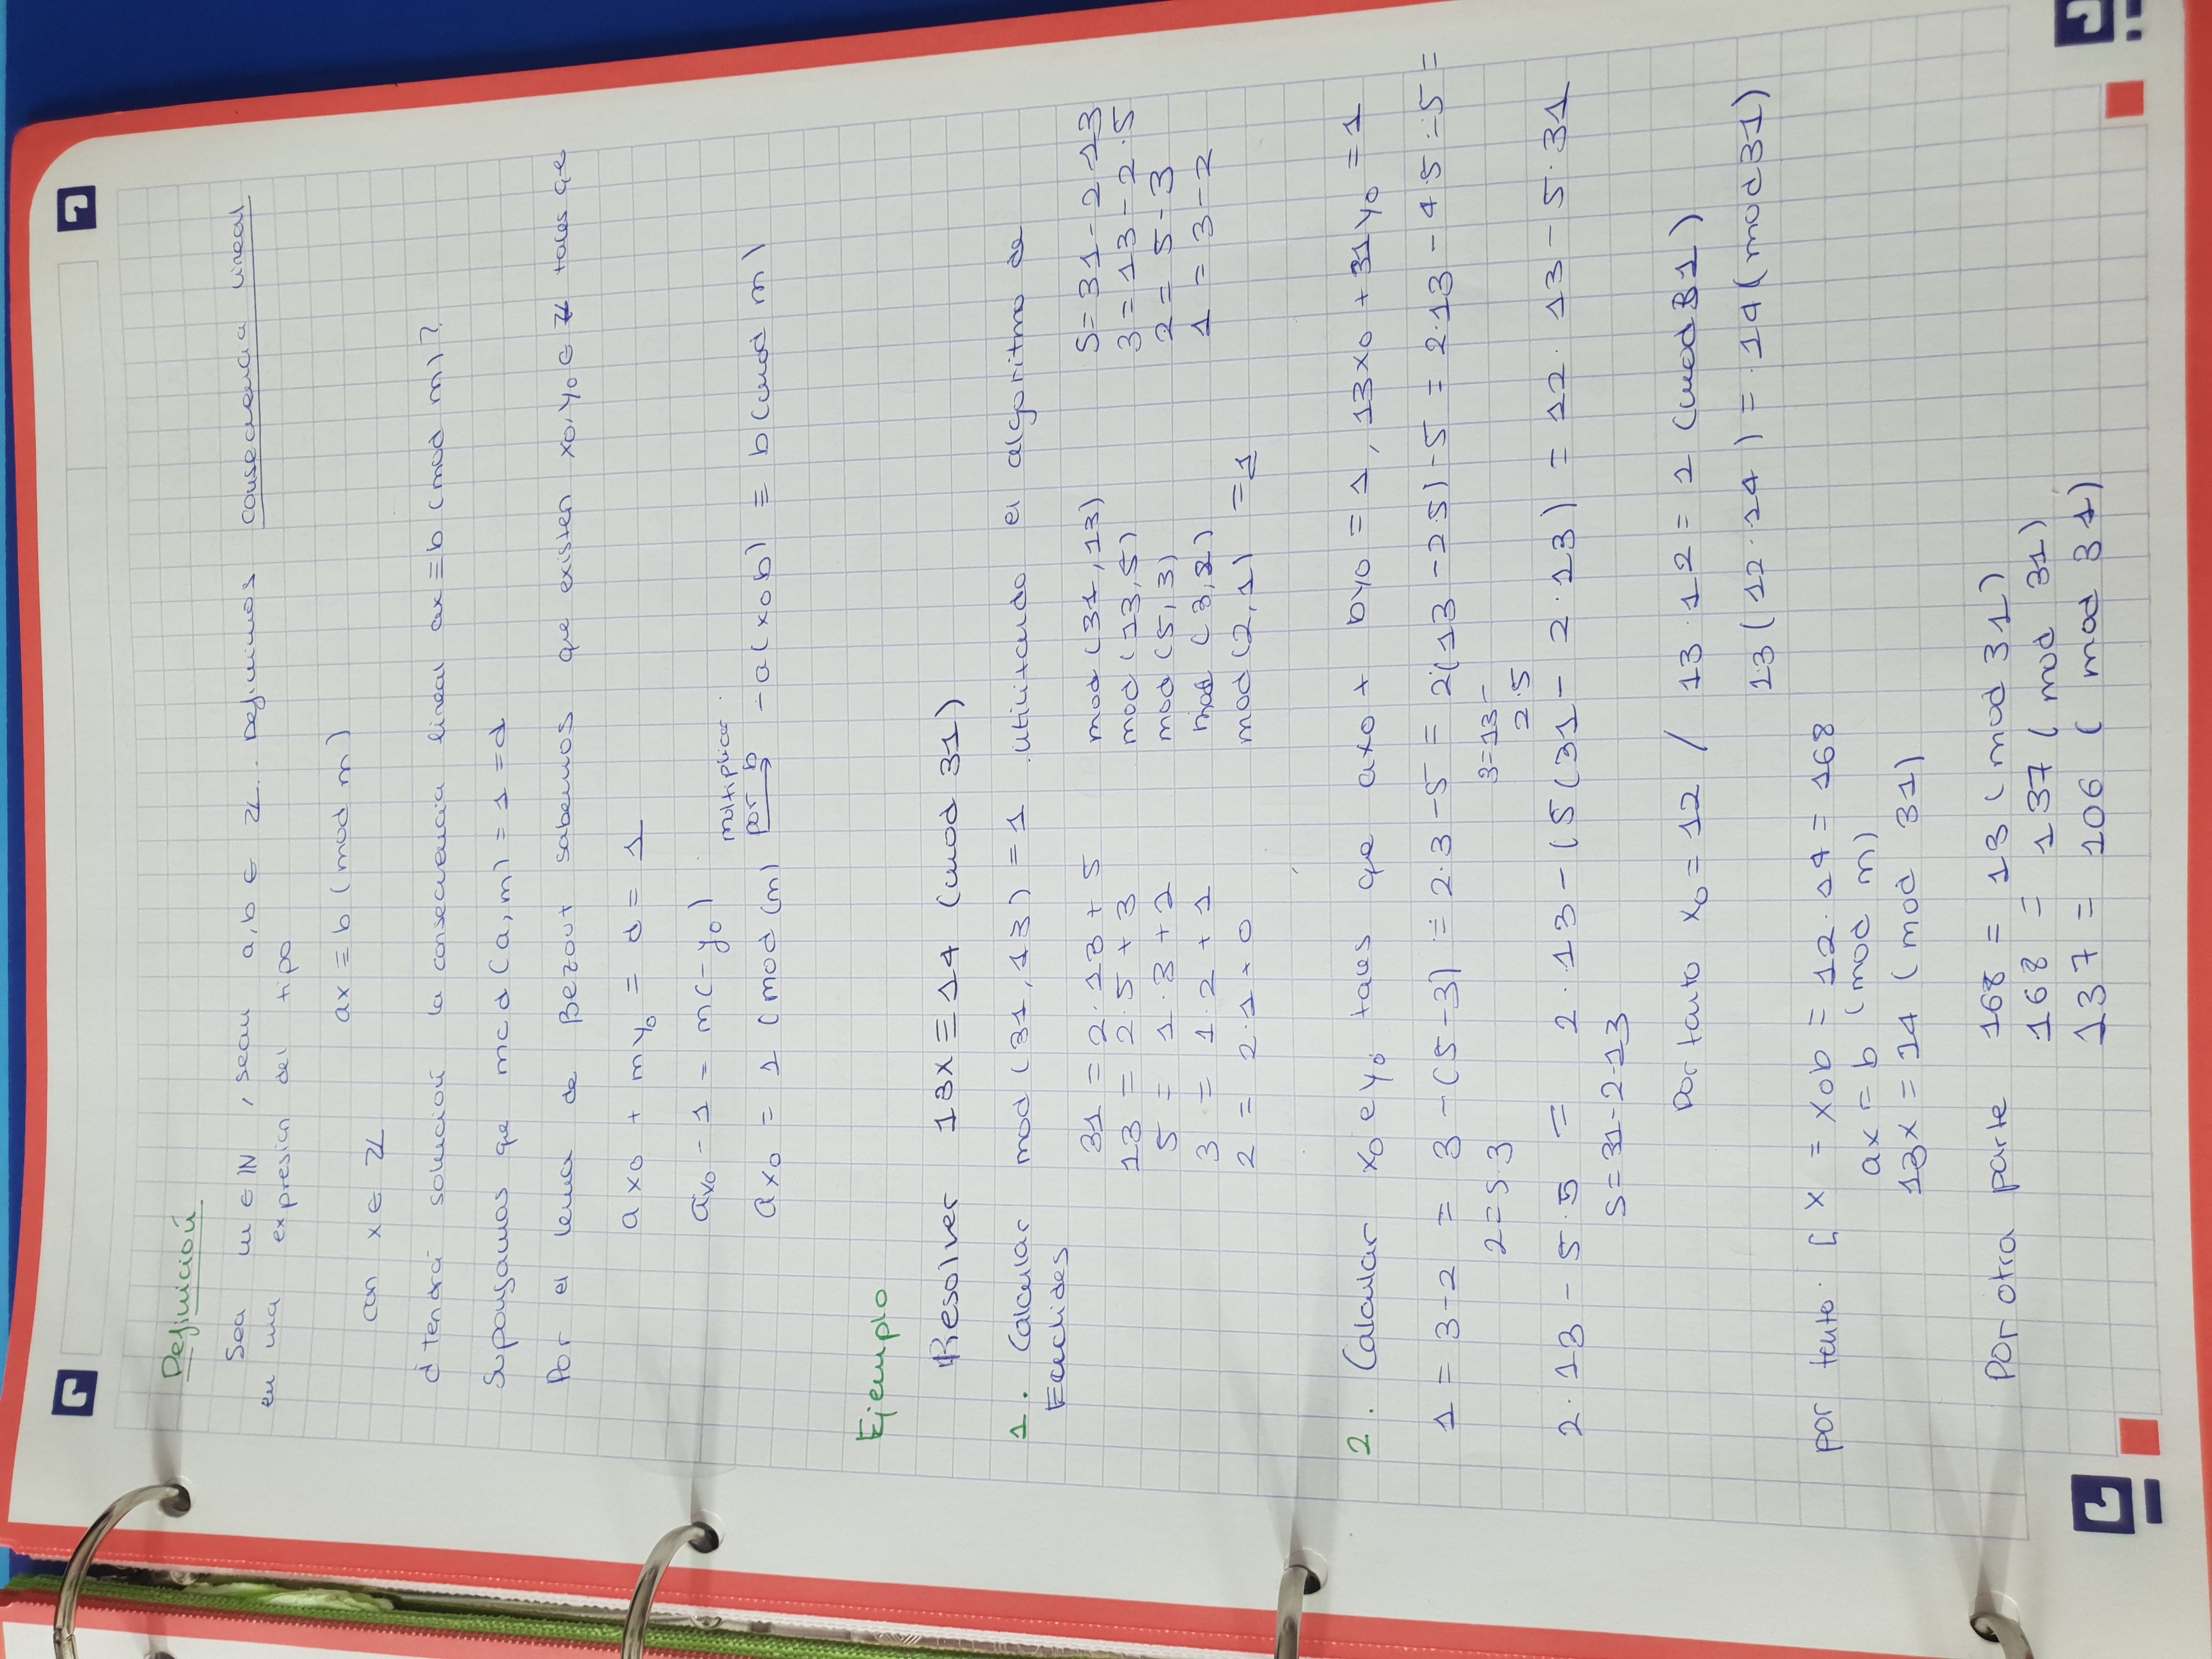 Definición
Sea m ∈ ℕ, sean a, b ∈ ℤ. Definimos consecuencia lineal
en una expresión del tipo
ax ≡ b (mod m)
con x ∈ ℤ
d tendrá solución la consecuencia lineal ax ≡ b (mod m)?
Supongamos que mcd (a, m) = 1 = d
Por el lema de Bezout sabemos que existen x0, y0 ∈ ℤ tales qe
ax0 + my0 = d = 1
ax0 - 1 = m(-y0)
multiplicar
ax0 = 1 (mod (m) por b - a(x0b) ≡ b (mod m)
Ejemplo
Resolver 13x ≡ 14 (mod 31)
1. Calcular mod (31, 13) = 1 utilizando el algoritmo de
Euclides
31 = 2·13 + 5 mod (31, 13) 5 = 31 - 2·13
13 = 2·5 + 3 mod (13, 5) 3 = 13 - 2·5
5 = 1·3 + 2 mod (5, 3) 2 = 5 - 3
3 = 1·2 + 1 mod (3, 2) 1 = 3 - 2
2 = 2·1 + 0 mod (2, 1) = 1
2. Calcular x0 e y0 tales que ax0 + by0 = 1, 13x0 + 31y0 = 1
1 = 3 - 2 = 3 - (5 - 3) = 2·3 - 5 = 2(13 - 25) - 5 = 2·13 - 4·5 - 5 =
2 = 5·3 3 = 13 -
2·5
2·13 - 5·5 = 2·13 - (5(31 - 2·13) = 12·13 - 5·31
5 = 31 - 2·13
Por tanto x0 = 12 / 13·12 = 1 (mod 31)
13 (12·14) = 14 (mod 31)
por tanto. [ x = x0b = 12·14 = 168
ax = b (mod m)
13x = 14 (mod 31)
Por otra parte 168 = 13 (mod 31)
168 = 137 (mod 31)
137 = 106 (mod 31)